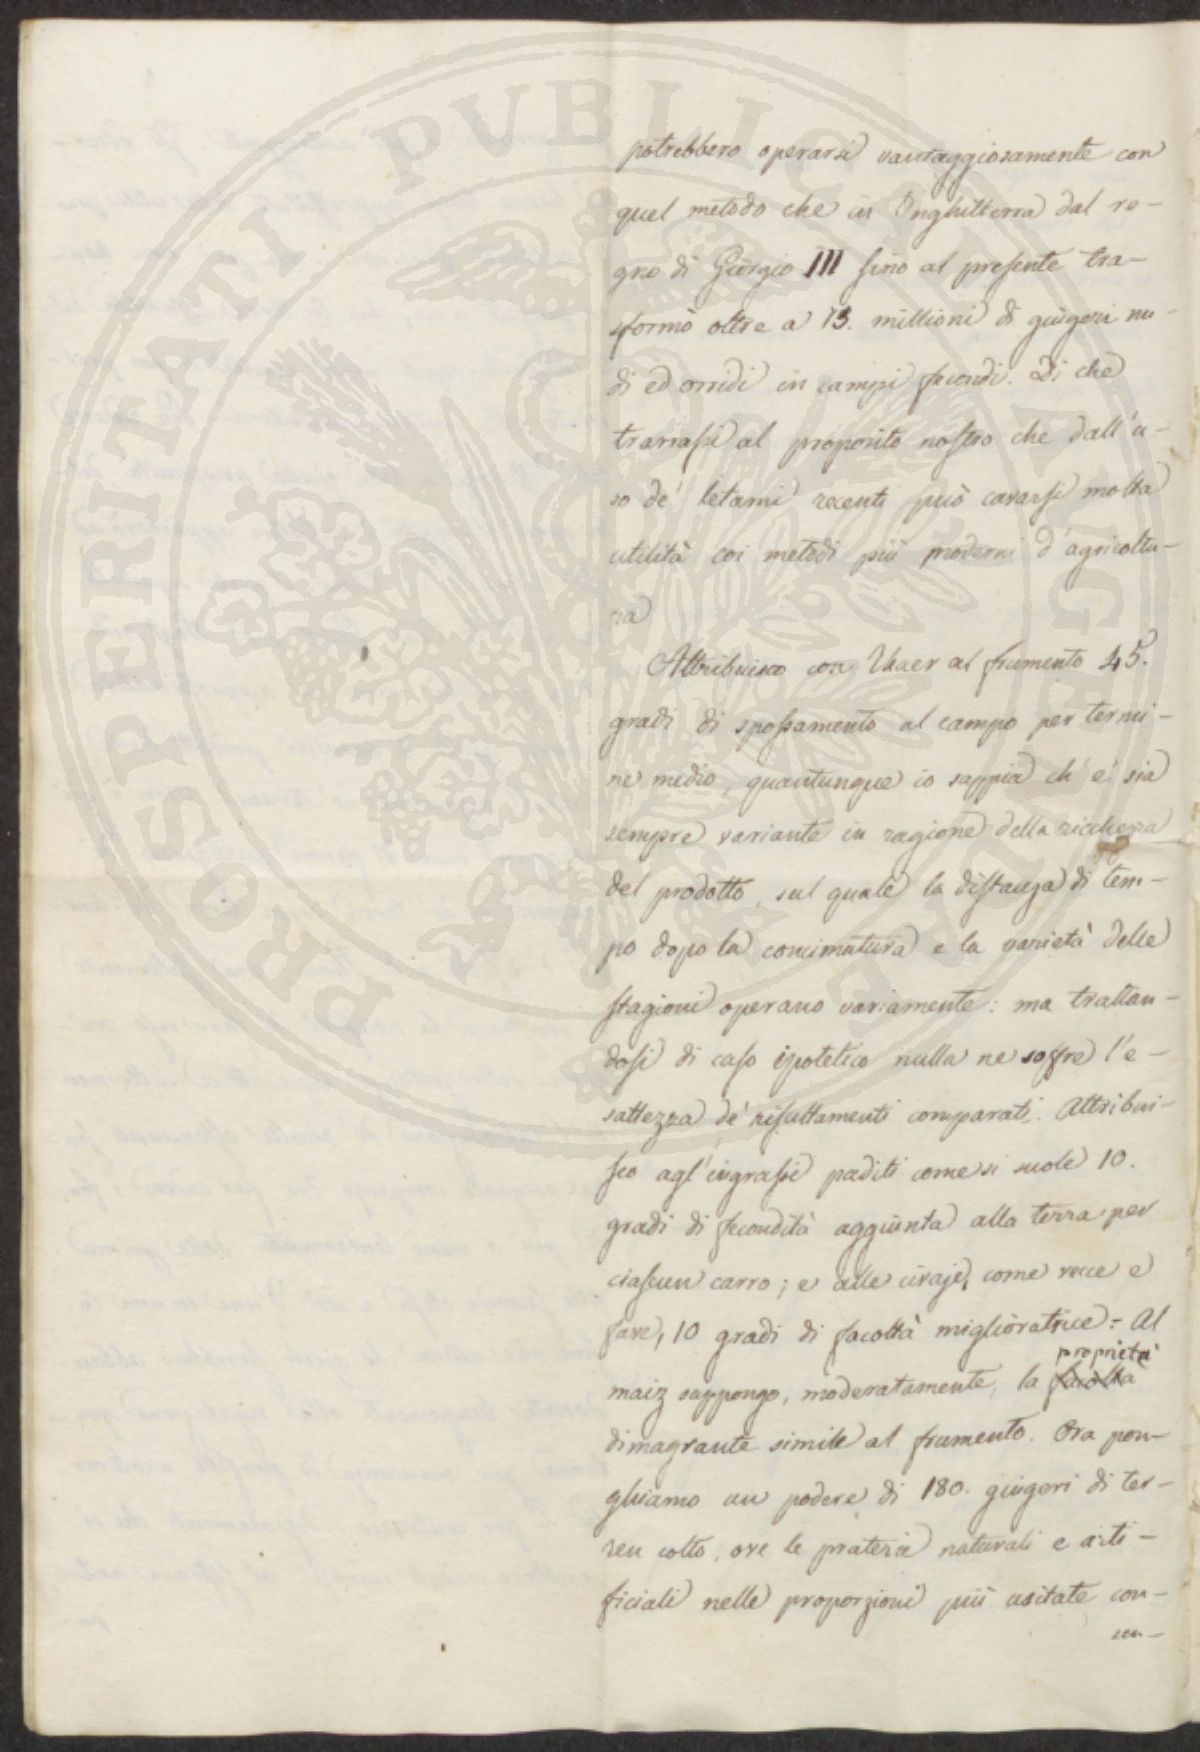 potrebbero operarsi vantaggiosamente con
quel metodo che in Inghilterra dal re-
gno di Giorgio III sino al presente tra-
sformò oltre a 13. millioni di giugeri nu-
di ed orridi in campi fecondi. Di che
trarrassi al proposito nostro che dall'u-
so de' letami recenti può cavarsi molta
utilità coi metodi più moderni d'agricoltu-
ra
Attribuisco con Thaer al frumento 45.
gradi di spossamento al campo per termi-
ne medio, quantunque io sappia ch'e' sia
sempre variante in ragione della ricchezza
del prodotto, sul quale la distanza di tem-
po dopo la concimatura e la varietà delle
stagioni operano variamente: ma trattan-
dosi di caso ipotetico nulla ne soffre l'e-
sattezza de' risultamenti comparati. Attribui-
sco agl'ingrassi paditi come si suole 10.
gradi di fecondità aggiunta alla terra per
ciascun carro; e alle civaje, come vecce e
fave, 10 gradi di facoltà miglioratrice: Al
proprietà
maiz suppongo, moderatamente, la facoltà
dimagrante simile al frumento. Ora pon-
ghiamo un podere di 180. giugeri di ter-
ren colto, ove le praterie naturali e arti-
ficiali nelle proporzioni più usitate con-
sen-
PROSPERITATI PUBLICAE AUGENDAE